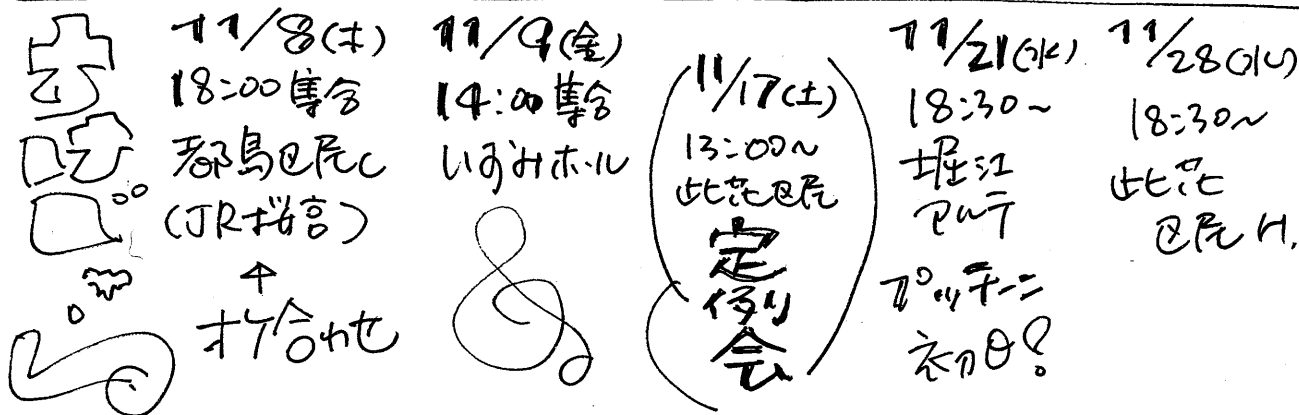 11/8(木)
18:00集合
都島区民C
(JR桜宮)
↑
オケ合わせ
11/9(金)
14:00集合
いずみホール
(11/17(土)
13:00~
此花区民
定
例
会)
11/21(水)
18:30~
堀江
アルテ
プッチーニ
初日?
11/28(水)
18:30~
此花
区民H.